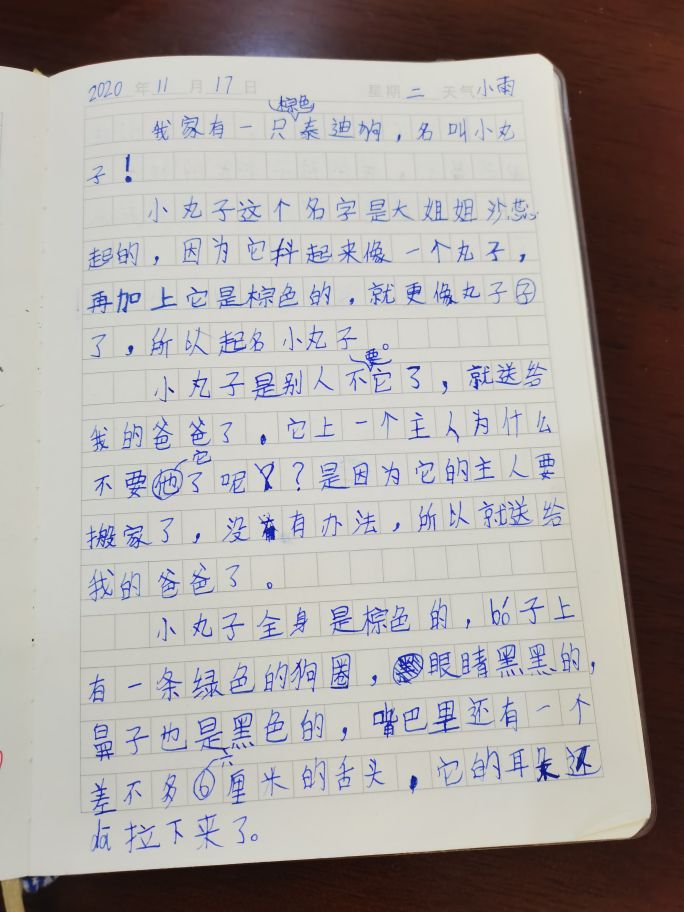 2020年11月17日 星期二 天气小雨
我家有一只棕色泰迪狗，名叫小丸
子！
小丸子这个名字是大姐姐汐蕊
起的，因为它抖起来像一个丸子，
再加上它是棕色的，就更像丸子子
了，所以起名小丸子。
小丸子是别人不要它了，就送给
我的爸爸了。它上一个主人为什么
不要它了呢？是因为它的主人要
搬家了，没有办法，所以就送给
我的爸爸了。
小丸子全身是棕色的，bó子上
有一条绿色的狗圈，眼睛黑黑的，
鼻子也是黑色的，嘴巴里还有一个
差不多六厘米的舌头，它的耳朵还
dā拉下来了。